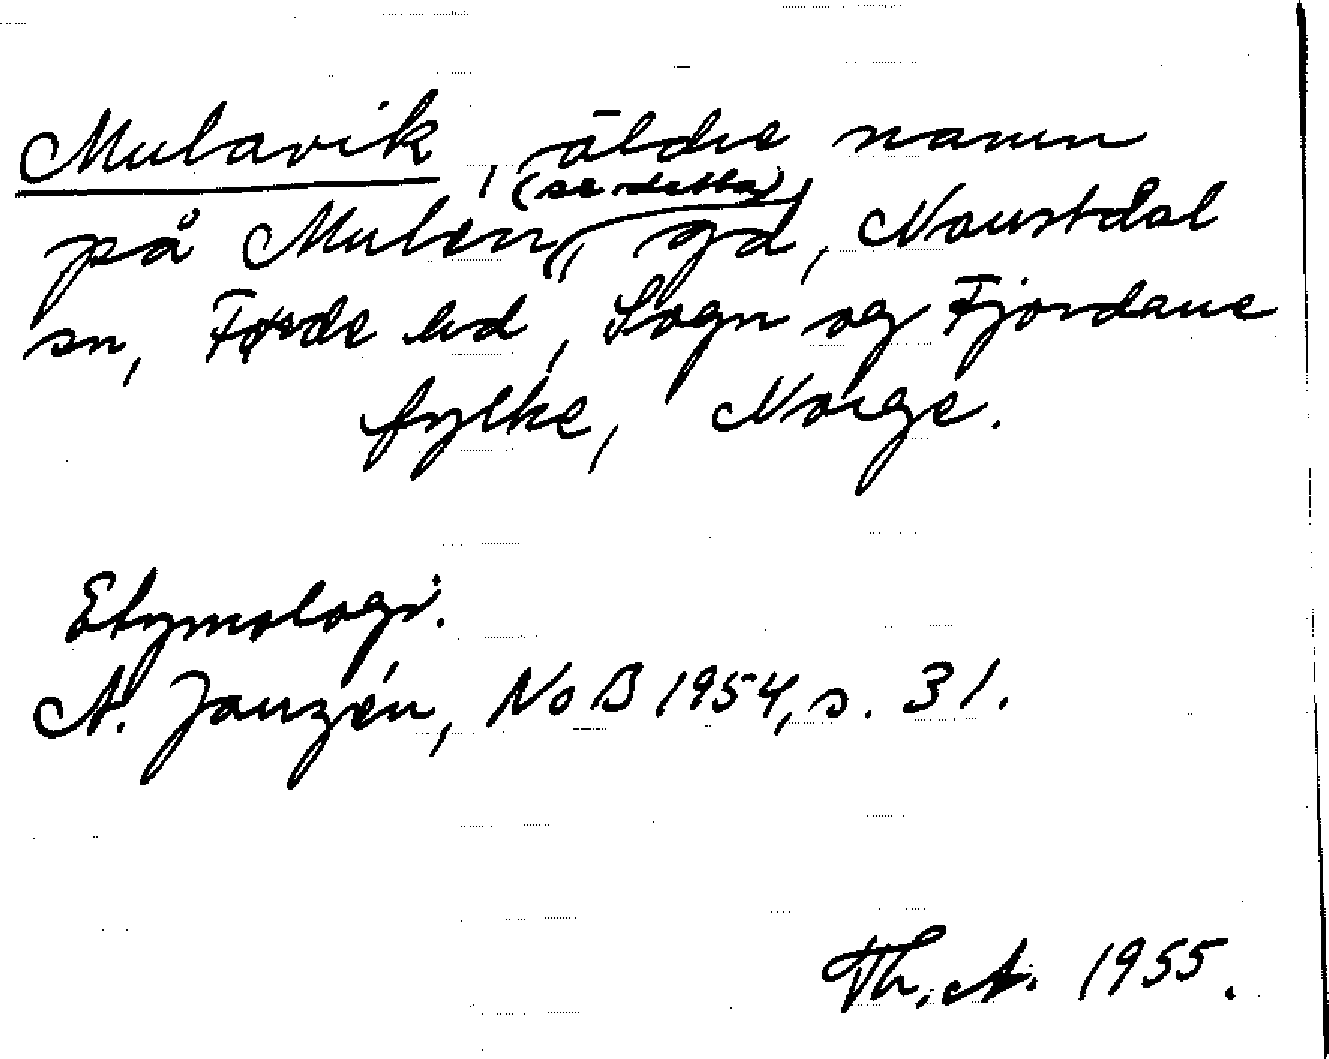 Mulavik, äldre namn
på Mulen, (se detta) gd, Naustdal
sn, Førde hd, Sogn og Fjordane
fylke, Norge.
Etymologi.
A. Janzén, NoB 1954, s. 31.
Th. A. 1955.